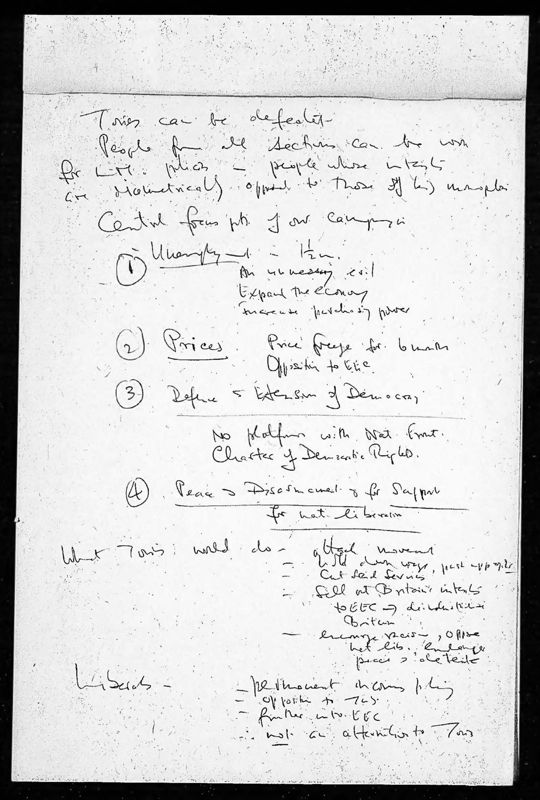 Tories can be defeated
People from all sections can be won
for policies — people whose interests
are diametrically opposed to those of big monopolies
Central focus pts. of our campaign
① Unemployment — 1½ m.
An unnecessary evil
Expand the economy
Increase purchasing power
② Prices Price freeze for 6 months
Opposition to EEC
③ Defence & Extension of Democracy
No platform with Nat Front.
Charter of Democratic Rights.
④ Peace & Disarmament & for Support
for nat. liberation
What Tories would do — attack movement
— hold down wages,
— Cut Social Services
— Sell out Britain's interests
to EEC → deindustrialise
Britain
— encourage racism, oppose
nat lib., endanger
peace & detente
Liberals — — permanent incomes policy
— opposition to TUs.
— further into EEC
∴ not an alternative to Tories